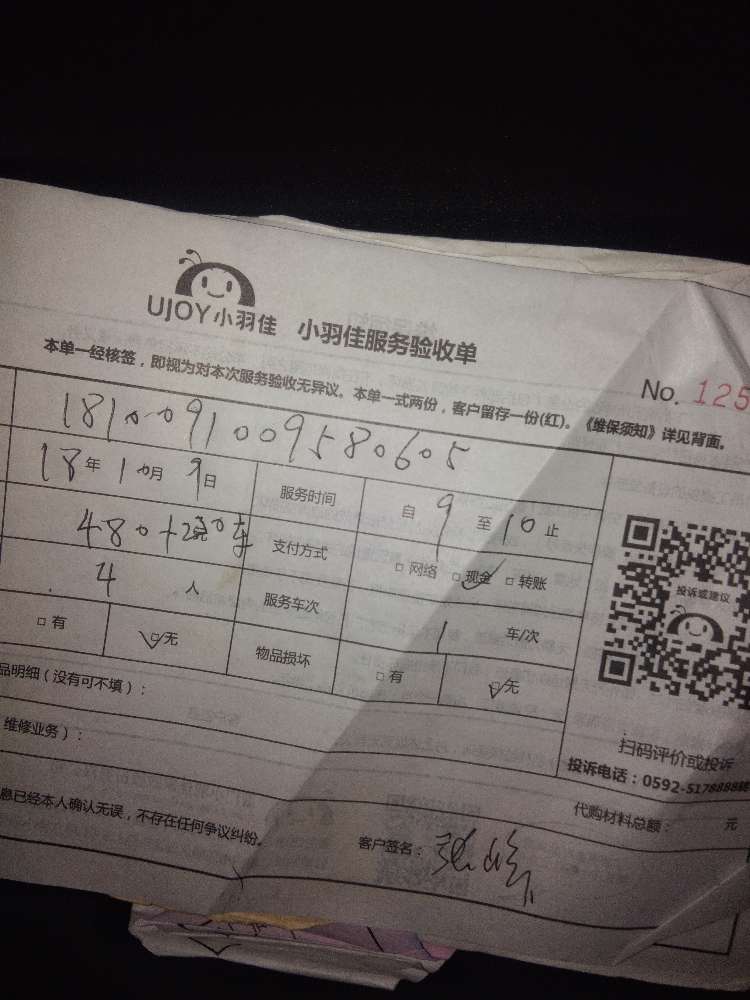 UJOY小羽佳 小羽佳服务验收单
No. 125
本单一经核签，即视为对本次服务验收无异议。本单一式两份，客户留存一份(红)。《维保须知》详见背面。
1810091009580605
18年10月9日 服务时间 自9至10止
480+ 车 支付方式 □网络 □现金 □转账
4人 服务车次 1 车/次
□有 □无 物品损坏 □有 □无
投诉或建议
品明细（没有可不填）：
维修业务）：
扫码评价或投诉
投诉电话：0592-5178888
代购材料总额： 元
息已经本人确认无误，不存在任何争议纠纷。
客户签名：